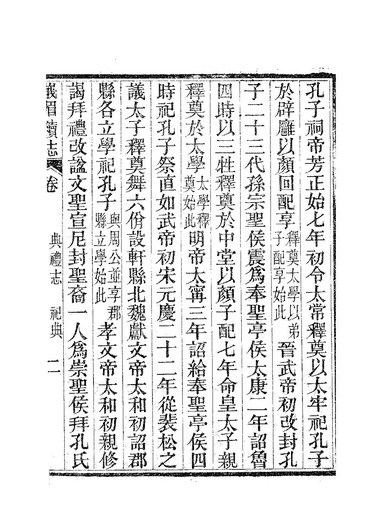 孔子祠帝芳正始七年初令太常釋奠以太牢祀孔子
於辟廱以顏回配享釋奠太學以弟子配享始此晉武帝初改封孔
子二十三代孫宗聖侯震爲奉聖亭侯太康二年詔魯
四時以三牲釋奠於中堂以顏子配七年命皇太子親
釋奠於太學太學釋奠始此明帝太寧三年詔給奉聖亭侯四
時祀孔子祭直如武帝初宋元慶二十二年從裴松之
議太子釋奠舞六佾設軒縣北魏獻文帝太和初詔郡
縣各立學祀孔子與周公並享郡縣立學始此孝文帝太和初親修
謁拜禮改諡文聖宣尼封聖裔一人爲崇聖侯拜孔氏
峩眉續志 卷 典禮志 祀典 二